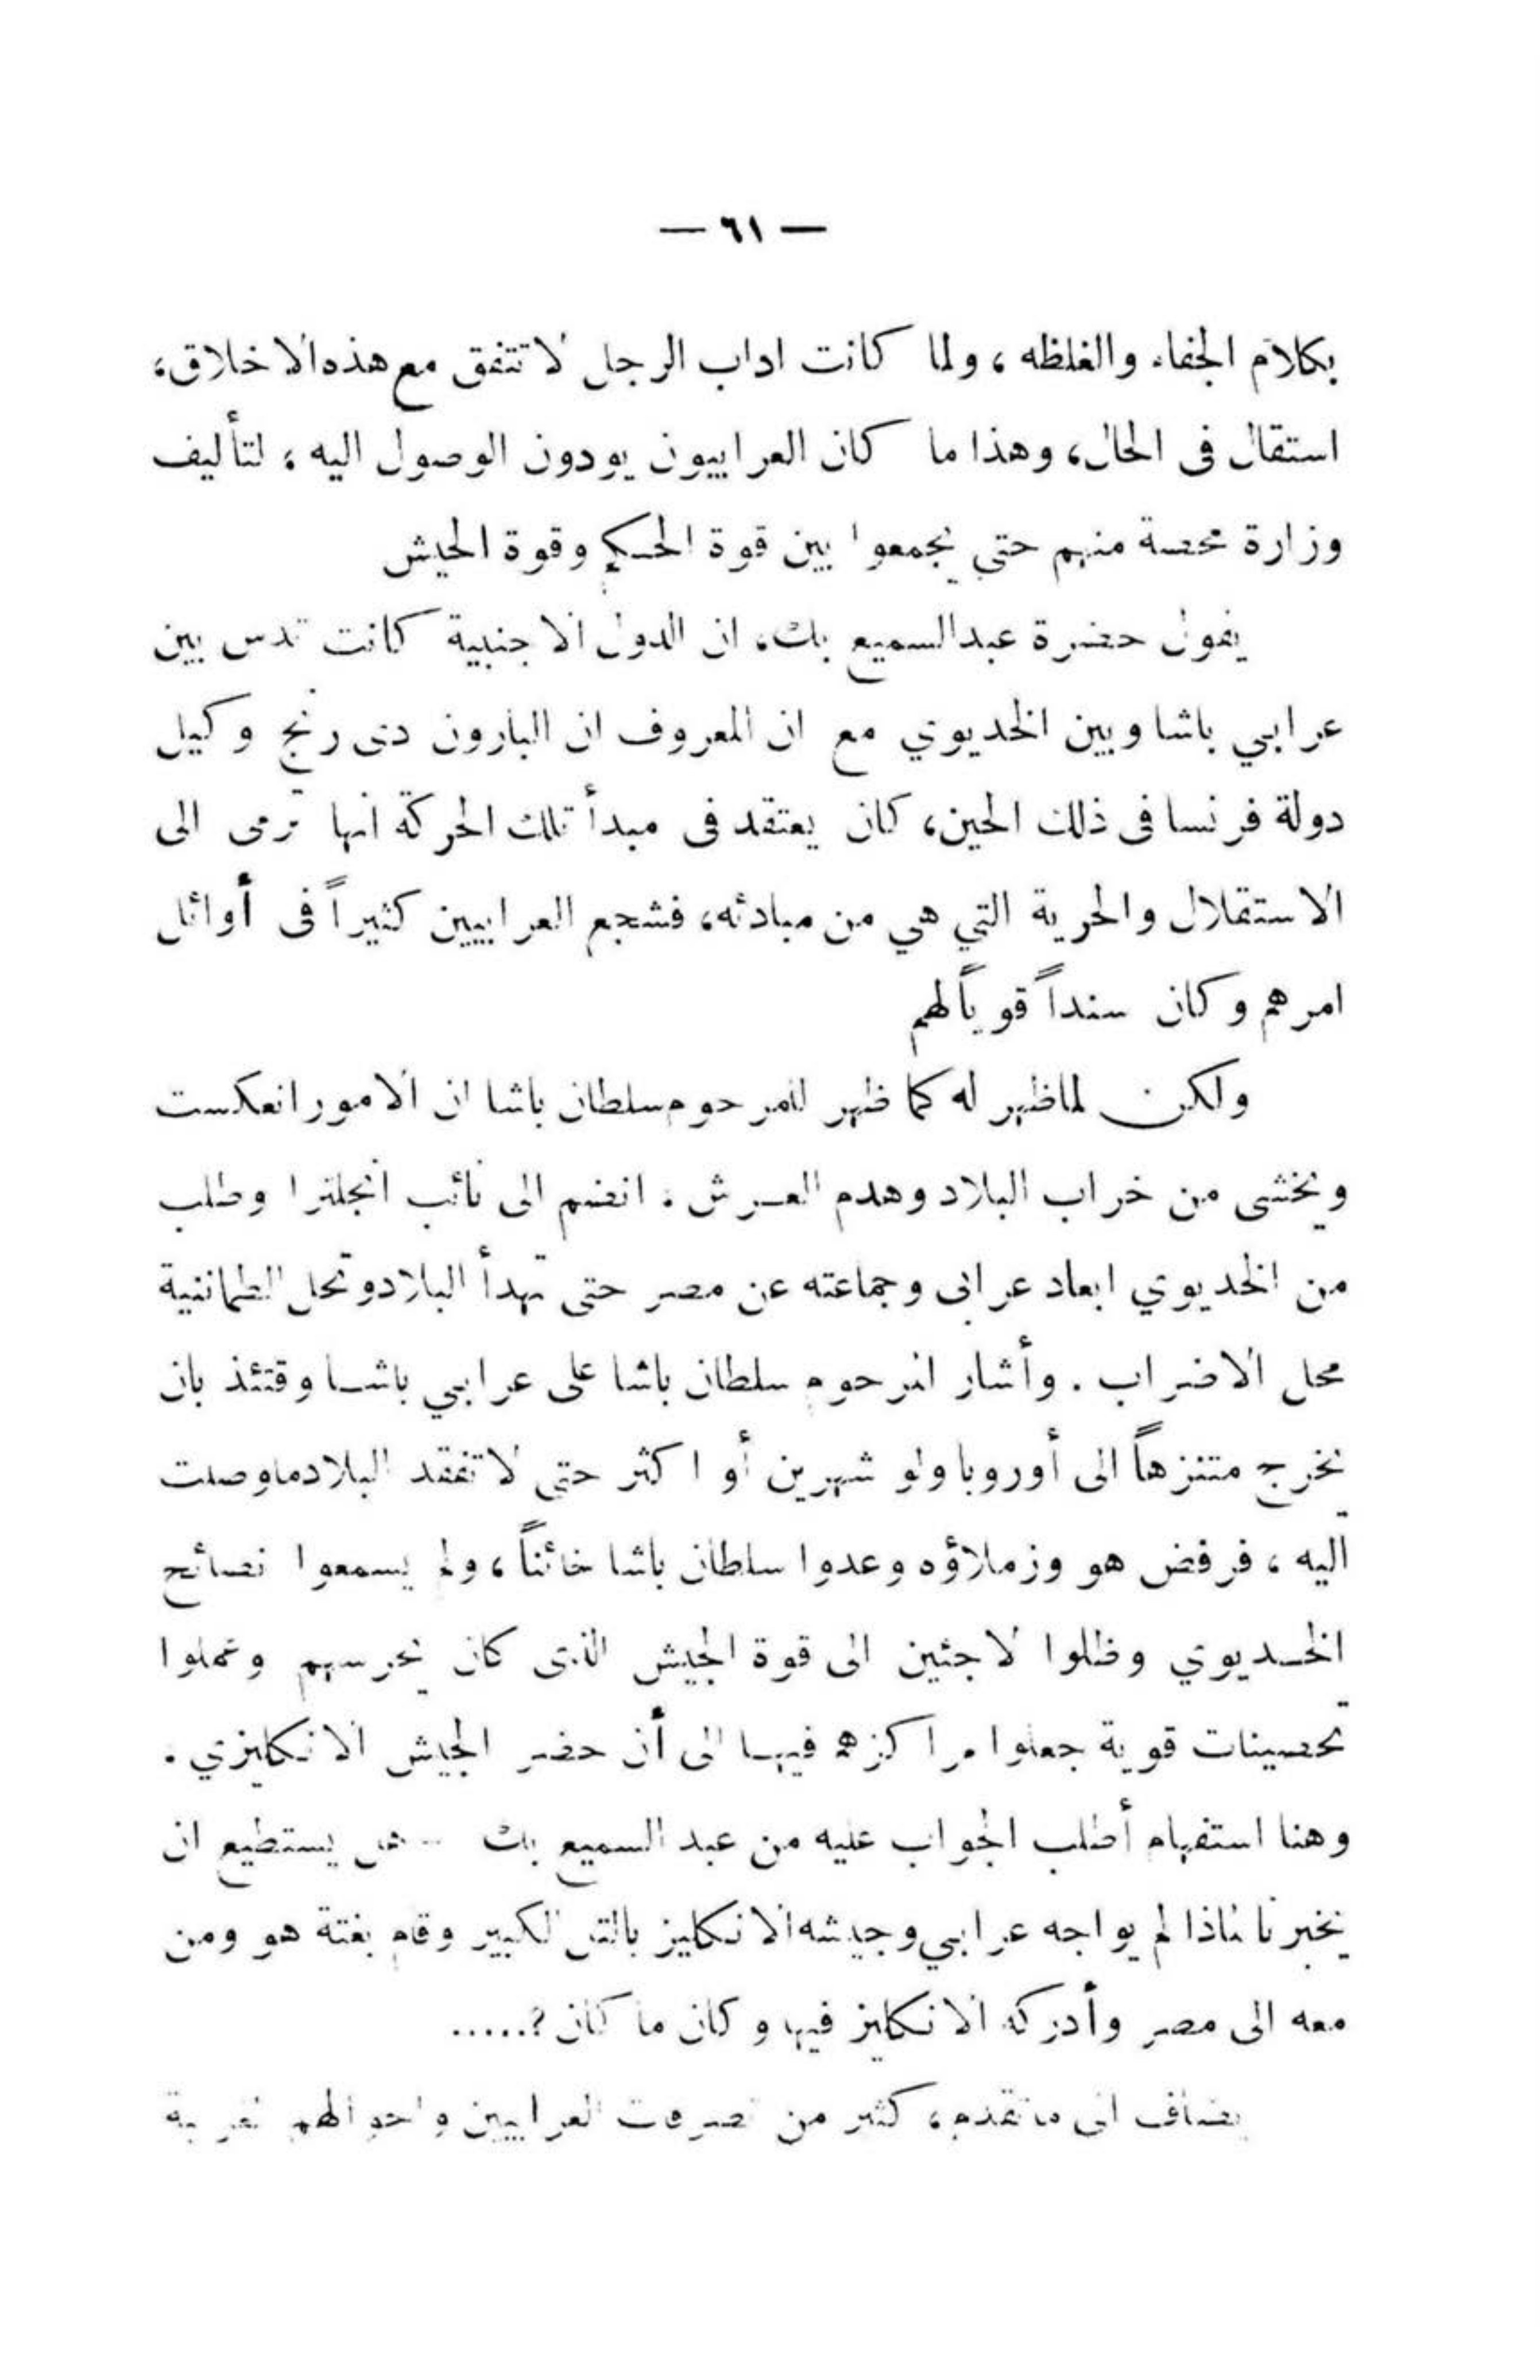 — ٦١ —
بكلام الجفاء والغلظه ، ولما كانت اداب الرجل لا تتفق مع هذه الاخلاق،
استقال فى الحال، وهذا ما كان العرابيون يودون الوصول اليه ، لتأليف
وزارة محصة منهم حتى يجمعوا بين قوة الحكم وقوة الجيش
يقول حضرة عبد السميع بك، ان الدول الاجنبية كانت تدس بين
عرابي باشا وبين الخديوي مع ان المعروف ان البارون دى رنج وكيل
دولة فرنسا فى ذلك الحين، كان يعتقد فى مبدأ تلك الحركة انها ترمى الى
الاستقلال والحرية التي هي من مبادئه، فشجع العرابيين كثيراً فى أوائل
امرهم وكان سنداً قوياً لهم
ولكن لما ظهر له كما ظهر للمرحوم سلطان باشا ان الامور انعكست
ويخشى من خراب البلاد وهدم العرش . انضم الى نائب انجلترا وطلب
من الخديوي ابعاد عرابى وجماعته عن مصر حتى تهدأ البلاد وتحل الطمانينة
محل الاضراب . وأشار المرحوم سلطان باشا على عرابي باشا وقتئذ بان
يخرج متنزهاً الى أوروبا ولو شهرين أو اكثر حتى لا تفقد البلاد ما وصلت
اليه ، فرفض هو وزملاؤه وعدوا سلطان باشا خائناً ، ولم يسمعوا نصائح
الخديوي وظلوا لاجئين الى قوة الجيش الذى كان يحرسهم وعملوا
تحصينات قوية جعلوا مراكزهم فيها الى أن حضر الجيش الانكليزي .
وهنا استفهام أطلب الجواب عليه من عبد السميع بك - هل يستطيع ان
يخبرنا لماذا لم يواجه عرابي وجيشه الانكليز بالتل الكبير وقام بغتة هو ومن
معه الى مصر وأدركه الانكليز فيها وكان ما كان ؟.....
يضاف الى ما تقدم ، كثير من تصرفات العرابيين واحوالهم